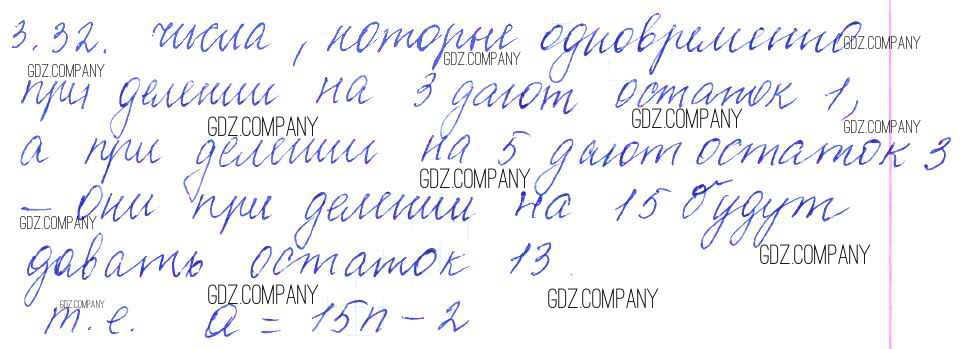 3.32. числа, которые одновременно
GDZ.COMPANY GDZ.COMPANY GDZ.COMPANY
при делении на 3 дают остаток 1,
GDZ.COMPANY GDZ.COMPANY GDZ.COMPANY
а при делении на 5 дают остаток 3
GDZ.COMPANY
– они при делении на 15 будут
GDZ.COMPANY
давать остаток 13
GDZ.COMPANY
GDZ.COMPANY GDZ.COMPANY GDZ.COMPANY
т.е. a = 15n – 2